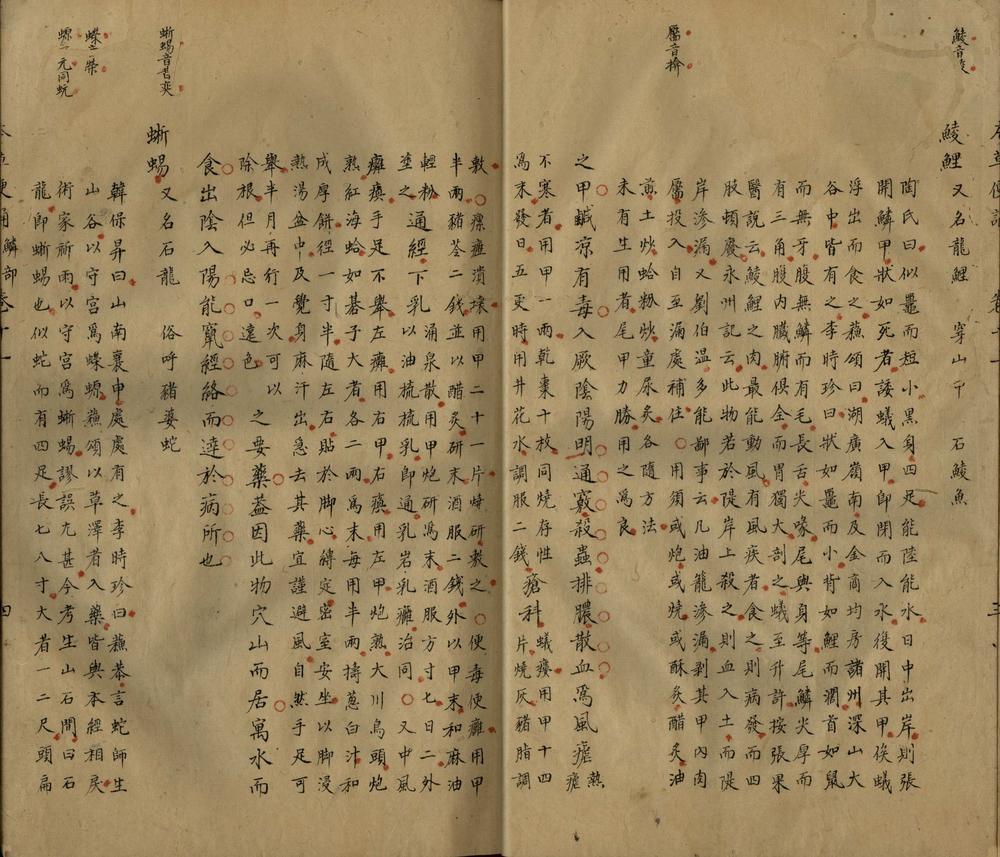 鯪音夌
鯪鯉 又名龍鯉 穿山甲 石鯪魚
陶氏曰似鼉而短小黑身四足能陸能水日中出岸則張
開鱗甲狀如死者誘蟻入甲即閉而入水後開其甲俟蟻
浮出而食之蘇頌曰湖廣嶺南及金商均房諸州深山大
谷中皆有之李時珍曰狀如鼉而小背如鯉而濶首如鼠
而無牙腹無鱗而有毛長舌尖喙尾與身等尾鱗尖厚而
有三角腹內臟腑俱全而胃獨大剖之蟻至升許按張杲
醫說云鯪鯉之肉最能動風有風疾者食之則病發而四
肢頓廢永州記云此物若於隄岸上殺之則血入土而隄
岸滲漏又劉伯溫多能鄙事云凡油籠滲漏剥其甲內肉
靨投入自至漏處補住○用須或炮或燒或酥炙醋炙油
靨音揜
煎土炒蛤粉炒童尿炙各隨方法
未有生用者尾甲力勝用之爲良
之甲鹹凉有毒入厥陰陽明通竅殺蟲排膿散血爲風瘧熱瘧
不寒者用甲一兩乾棗十枚同燒存性瘡科蟻瘻用甲十四
爲末發日五更時用井花水調服二錢片燒灰豬脂調
敷○瘰癧潰壞用甲二十一片燒研敷之○便毒便癰用甲
半兩豬苓二錢並以醋炙研末酒服二錢外以甲末和麻油
輕粉通經下乳涌泉散用甲炮研爲末酒服方寸匕日二外
塗之以油梳梳乳即通乳岩乳癰治同○又中風
癱瘓手足不舉左癱用右甲右瘓用左甲炮熟大川烏頭炮
熟紅海蛤如碁子大者各二兩爲末每用半兩擣蔥白汁和
成厚餅徑一寸半隨左右貼於脚心縛定密室安坐以脚浸
熱湯盆中及覺身麻汗出急去其藥宜謹避風自然手足可
舉半月再行一次可以之要藥蓋因此物穴山而居寓水而
除根但必忌口遠色
食出陰入陽能竄經絡而達於病所也
蜥蜴音昔奕
蜥蜴 又名石龍 俗呼豬婆蛇
韓保昇曰山南襄申處處有之李時珍曰蘇恭言蛇師生
山谷以守宮爲蠑螈蘇頌以草澤者入藥皆與本經相戾
術家祈雨以守宮爲蜥蜴謬誤尤甚今考生山石間曰石
龍即蜥蜴也似蛇而有四足長七八寸大者一二尺頭扁
蠑音榮
螈音元同蚖